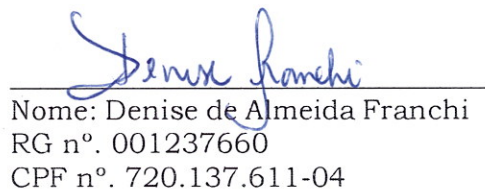 Denise Franchi
Nome: Denise de Almeida Franchi
RG nº. 001237660
CPF nº. 720.137.611-04